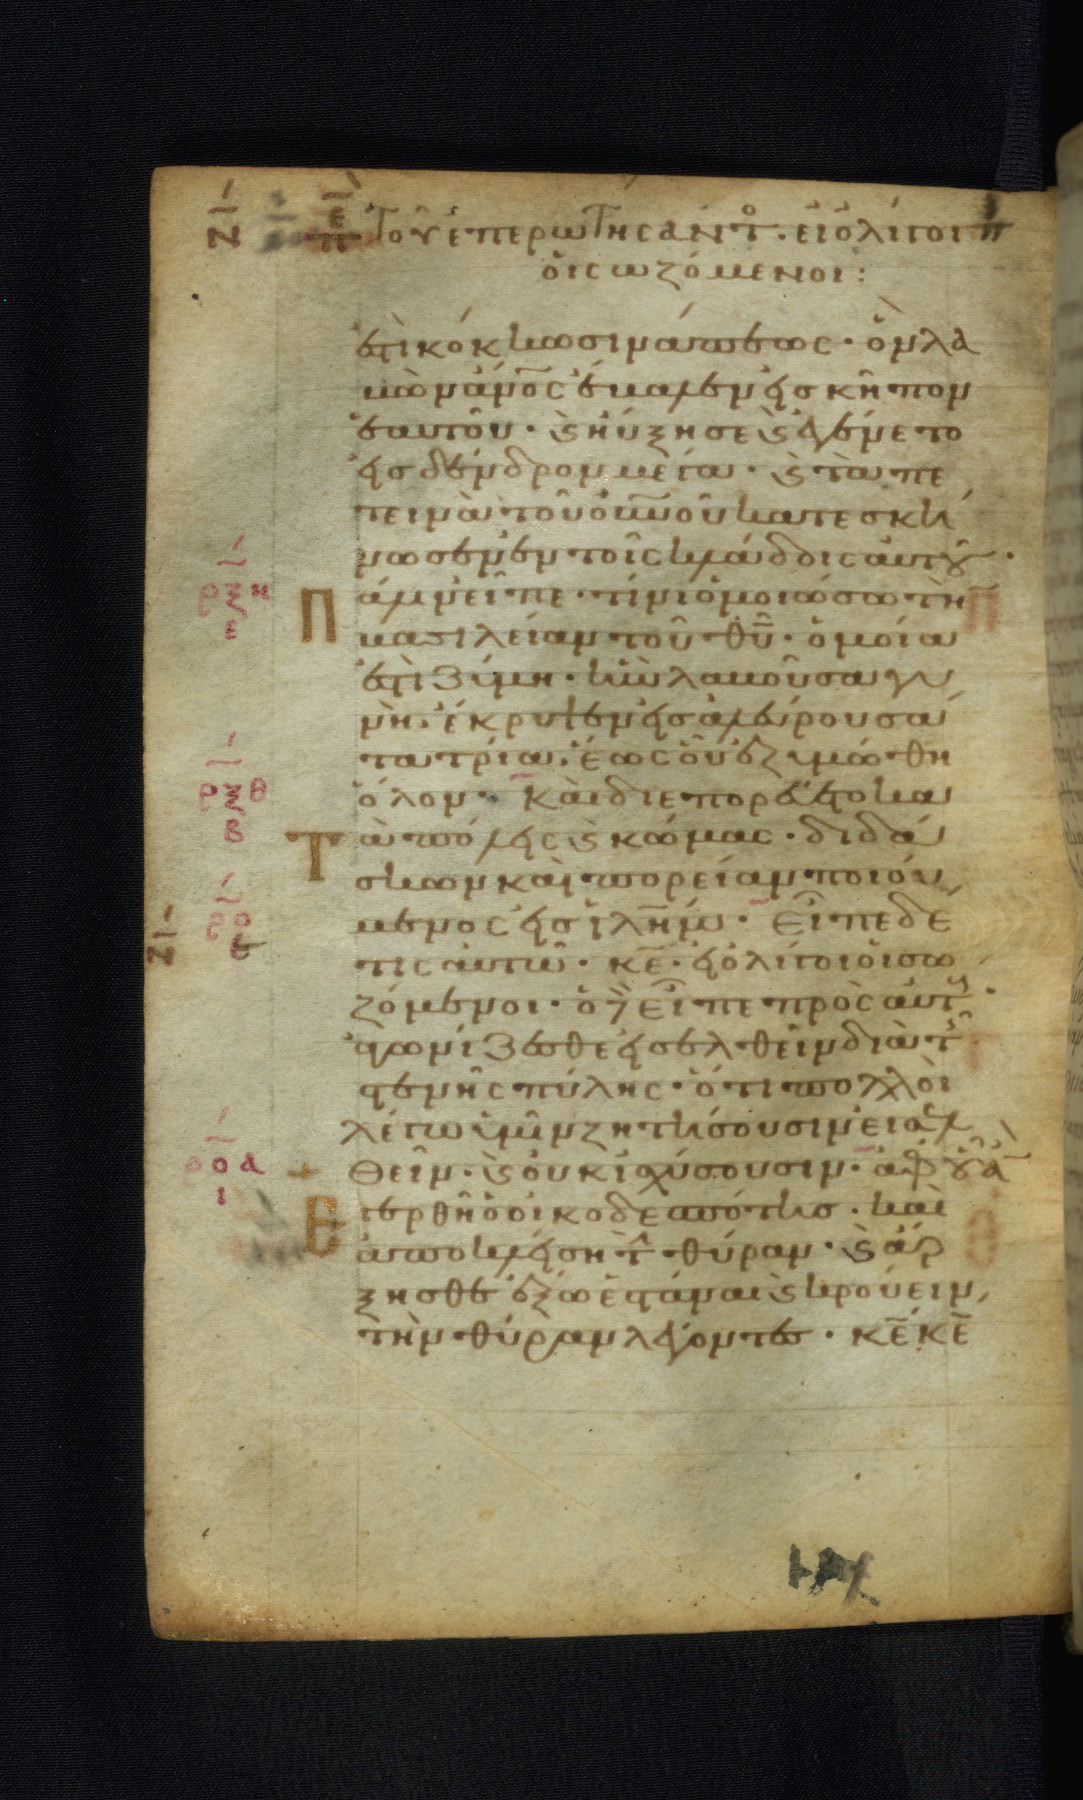 Τοῦ ἐπερωτήσαντο· εἰ ὀλίγοι
οἱ σωζόμενοι:
ἐστὶ κόκκω σινάπεως· ὃν λα
βὼν ἄνος ἔβαλεν εἰς κῆπον
ἑαυτοῦ· ϗ ηὔξησε ϗ ἐγένετο
εἰς δένδρον μέγα· ϗ τὰ πε
τεινὰ τοῦ οὐνοῦ κατεσκή
νωσεν ἐν τοῖς κλάδοις αὐτοῦ·
Πάλιν εἶπε· τίνι ὁμοιώσω τὴν
βασιλείαν τοῦ θῦ· ὁμοία
ἐστὶ ζύμη· ἣν λαβοῦσα γυ
νὴ ἔκρυψεν εἰς ἀλεύρου σά
τα τρία. ἕως οὗ ἐζυμώθη
ὅλον· Καὶ διεπορεύετο κα
Τὰ πόλεις ϗ κώμας· διδά
σκων καὶ πορείαν ποιού
μενος εἰς ἱλήμ· Εἶπε δέ
τις αὐτῶ· κε· εἰ ὀλίγοι οἱ σω
ζόμενοι· ὁ δὲ εἶπε πρὸς αὐτ·
ἀγωνίζεσθε εἰσελθεῖν διὰ τ
στενῆς πύλης· ὅτι πολλοὶ
λέγω ὑμῖν ζητήσουσιν εἰσελ
θεῖν· ϗ οὐκ ἰσχύσουσιν· ἀφ οὗ ἂ
Ἐγερθῆ ὁ οἰκοδεσπότης· καὶ
ἀποκλείση τ θύραν· ϗ ἄρ
ξησθε ἔξω ἑστάναι ϗ κρούειν
τὴν θύραν λέγοντες· κε κε
ρξη
ε
ρξθ
β
ρο
ε
ροα
ι